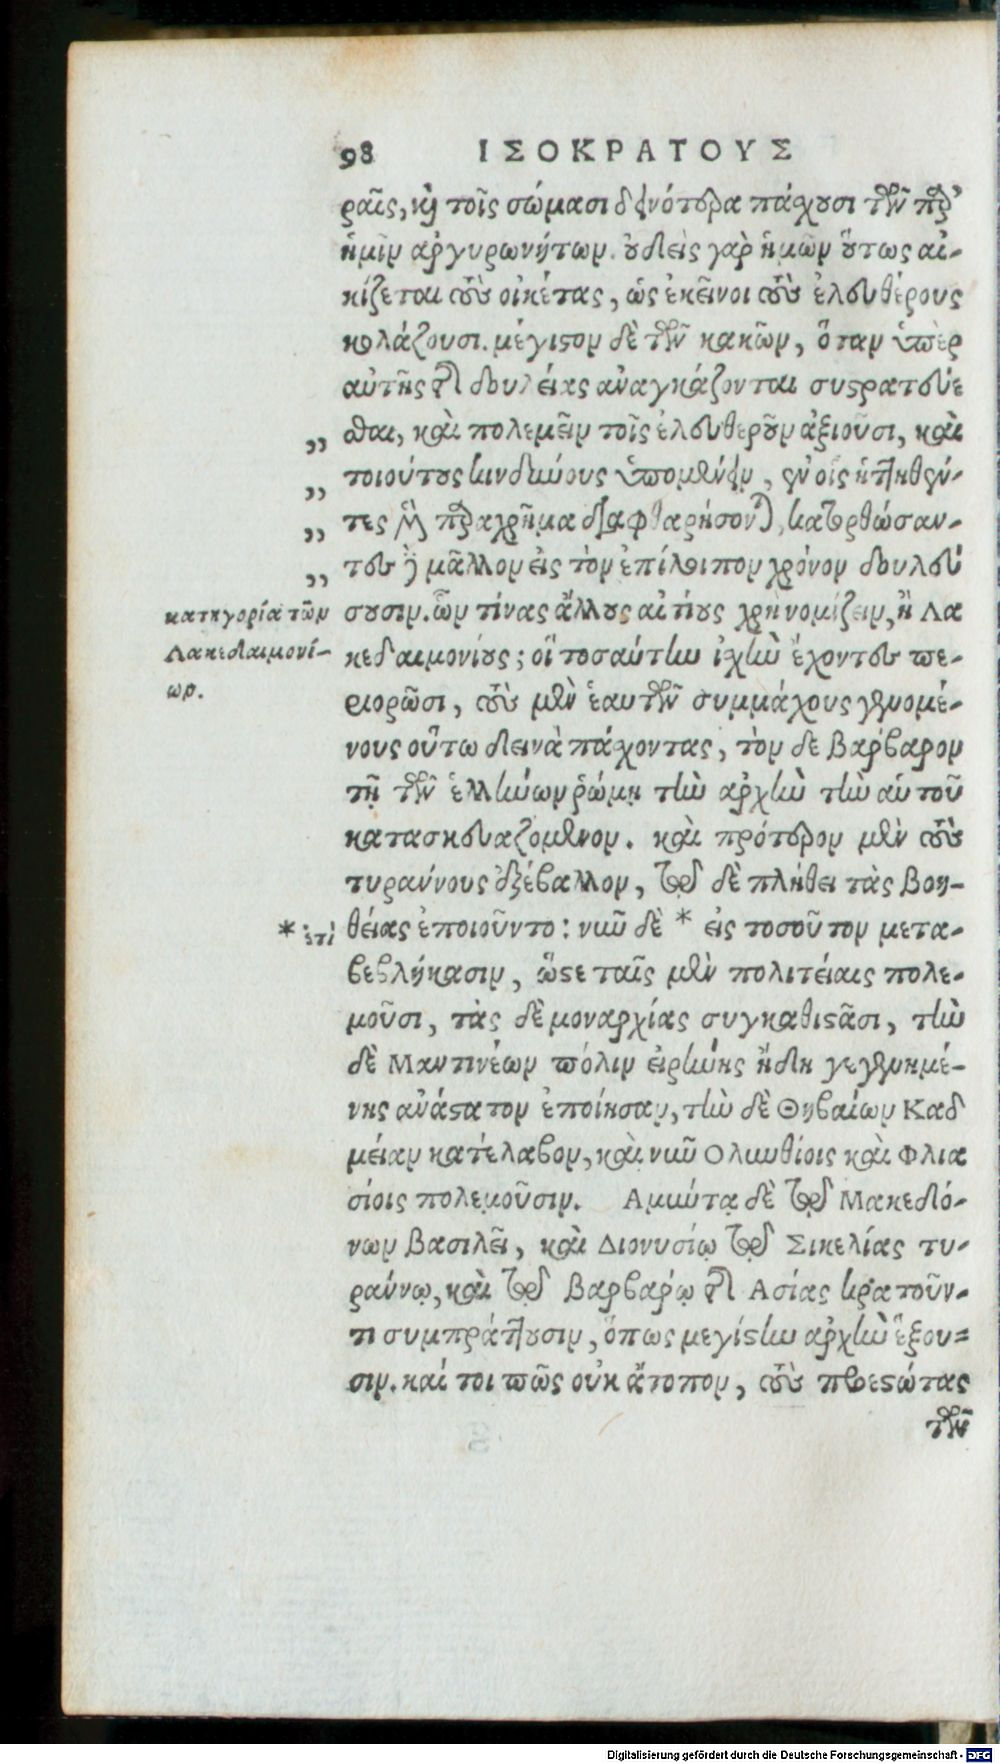 98 ΙΣΟΚΡΑΤΟΥΣ
ραῖς, καὶ τοῖς σώμασι δεινότερα πάχουσι τῶν παρ'
ἡμῖν ἀργυρωνήτων. οὐδεὶς γὰρ ἡμῶν οὕτως αἰ-
κίζεται τοὺς οἰκέτας, ὡς ἐκεῖνοι τοὺς ἐλευθέρους
κολάζουσι. μέγιστον δὲ τῶν κακῶν, ὅταν ὑπὲρ
αὐτῆς τῆς δουλείας ἀναγκάζονται συστρατεύε
σθαι, καὶ πολεμεῖν τοῖς ἐλευθεροῦν ἀξιοῦσι, καὶ
τοιούτους κινδύνους ὑπομένειν, ἐν οἷς ἡττηθέν-
τες μὲν παραχρῆμα διαφθαρήσονται, κατορθώσαν-
τες δὲ μᾶλλον εἰς τὸν ἐπίλοιπον χρόνον δουλεύ
σουσιν. ὧν τίνας ἄλλους αἰτίους χρὴ νομίζειν, ἢ Λα
κεδαιμονίους; οἳ τοσαύτην ἰχὺν ἔχοντες πε-
ριορῶσι, τοὺς μὲν ἑαυτῶν συμμάχους γενομέ-
νους οὕτω δεινὰ πάχοντας, τὸν δὲ βάρβαρον
τῇ τῶν ἑλλήνων ῥώμῃ τὴν ἀρχὴν τὴν αὑτοῦ
κατασκευαζόμενον. καὶ πρότερον μὲν τοὺς
τυράννους ἐξέβαλλον, τῷ δὲ πλήθει τὰς βοη-
θείας ἐποιοῦντο: νῦν δὲ * εἰς τοσοῦτον μετα-
βεβλήκασιν, ὥστε ταῖς μὲν πολιτείαις πολε-
μοῦσι, τὰς δὲ μοναρχίας συγκαθιστᾶσι, τὴν
δὲ Μαντινέων πόλιν εἰρήνης ἤδη γεγενημέ-
νης ἀνάστατον ἐποίησαν, τὴν δὲ Θηβαίων Καδ
μείαν κατέλαβον, καὶ νῦν Ολυνθίοις καὶ Φλια
σίοις πολεμοῦσιν. Αμύντᾳ δὲ τῷ Μακεδό-
νων βασιλεῖ, καὶ Διονυσίῳ τῷ Σικελίας τυ-
ράννῳ, καὶ τῷ βαρβάρῳ τῆς Ασίας κρατοῦν-
τι συμπράττουσιν, ὅπως μεγίστην ἀρχὴν ἕξου-
σιν. καί τοι πῶς οὐκ ἄτοπον, τοὺς προεστώτας
τῶν
„
„
„
„
κατηγορία τῶν
Λακεδαιμονί-
ων.
* ἔτι
Digitalisierung gefördert durch die Deutsche Forschungsgemeinschaft - DFG